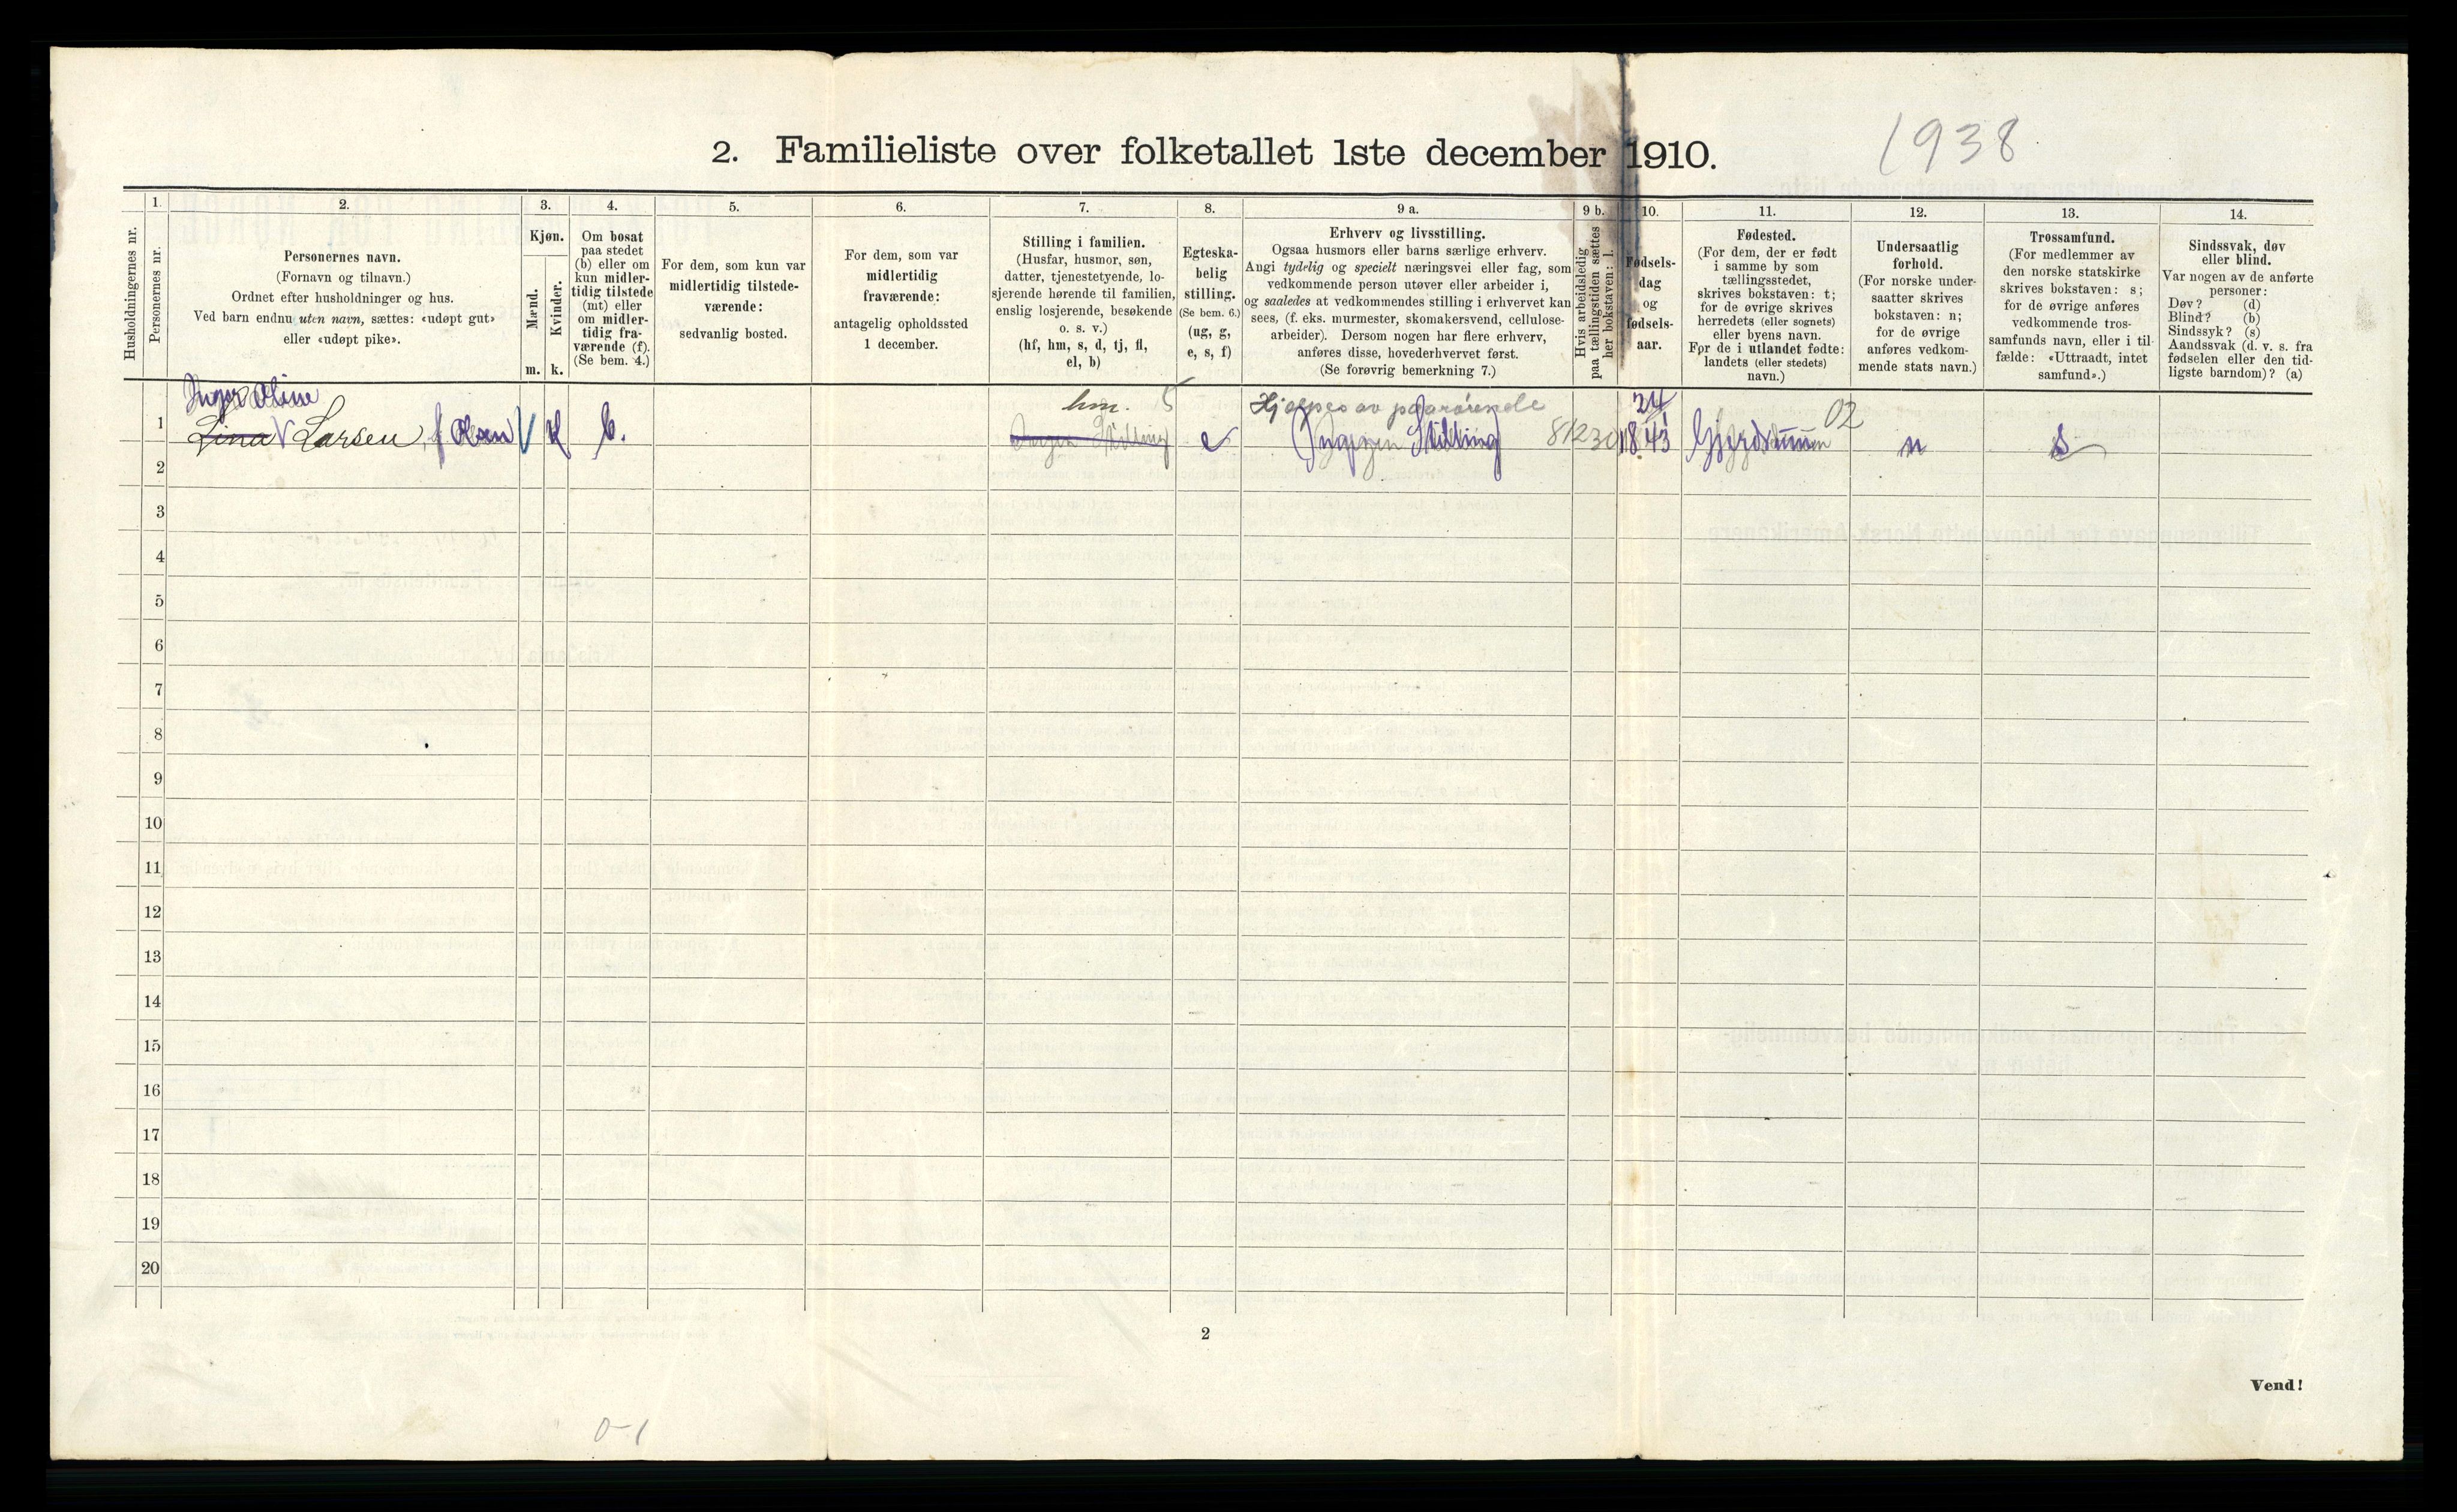 1938
2. Familieliste over folketallet 1ste december 1910.
1.
2.
3.
4.
5.
6.
7.
8.
9 a.
9 b.
10.
11.
12.
13.
14.
Husholdningernes nr.
Personernes nr.
Personernes navn.
(Fornavn og tilnavn.)
Ordnet efter husholdninger og hus.
Ved barn endnu uten navn, sættes: «udøpt gut»
eller «udøpt pike».
Kjøn.
Mænd.
Kvinder.
m. k.
Om bosat
paa stedet
(b) eller om
kun midler-
tidig tilstede
(mt) eller
om midler-
tidig fra-
værende (f).
(Se bem. 4.)
For dem, som kun var
midlertidig tilstede-
værende:
sedvanlig bosted.
For dem, som var
midlertidig
fraværende:
antagelig opholdssted
1 december.
Stilling i familien.
(Husfar, husmor, søn,
datter, tjenestetyende, lo-
sjerende hørende til familien,
enslig losjerende, besøkende
o. s. v.)
(hf, hm, s, d, tj, fl,
el, b)
Egteska-
belig
stilling.
(Se bem. 6.)
(ug, g,
e, s, f)
Erhverv og livsstilling.
Ogsaa husmors eller barns særlige erhverv.
Angi tydelig og specielt næringsvei eller fag, som
vedkommende person utøver eller arbeider i,
og saaledes at vedkommendes stilling i erhvervet kan
sees, (f. eks. murmester, skomakersvend, cellulose-
arbeider). Dersom nogen har flere erhverv,
anføres disse, hovederhvervet først.
(Se forøvrig bemerkning 7.)
Hvis arbeidsledig
paa tællingstiden sættes
her bokstaven: l.
Fødsels-
dag
og
fødsels-
aar.
Fødested.
(For dem, der er født
i samme by som
tællingsstedet,
skrives bokstaven: t;
for de øvrige skrives
herredets (eller sognets)
eller byens navn.
For de i utlandet fødte:
landets (eller stedets)
navn.)
Undersaatlig
forhold.
(For norske under-
saatter skrives
bokstaven: n;
for de øvrige
anføres vedkom-
mende stats navn.)
Trossamfund.
(For medlemmer av
den norske statskirke
skrives bokstaven: s;
for de øvrige anføres
vedkommende tros-
samfunds navn, eller i til-
fælde: «Uttraadt, intet
samfund».)
Sindssvak, døv
eller blind.
Var nogen av de anførte
personer:
Døv? (d)
Blind? (b)
Sindssyk? (s)
Aandssvak (d. v. s. fra
fødselen eller den tid-
ligste barndom)? (a)
Inger Oline
hm. 5
Hjælpes av paarørende
24
02
1 Lina Larsen, f Olsen k b. Ingen Stilling e (Ingen Stilling) 81230 1843 Gjerdrum n s
2
3
4
5
6
7
8
9
10
11
12
13
14
15
16
17
18
19
20
2
Vend!
0-1